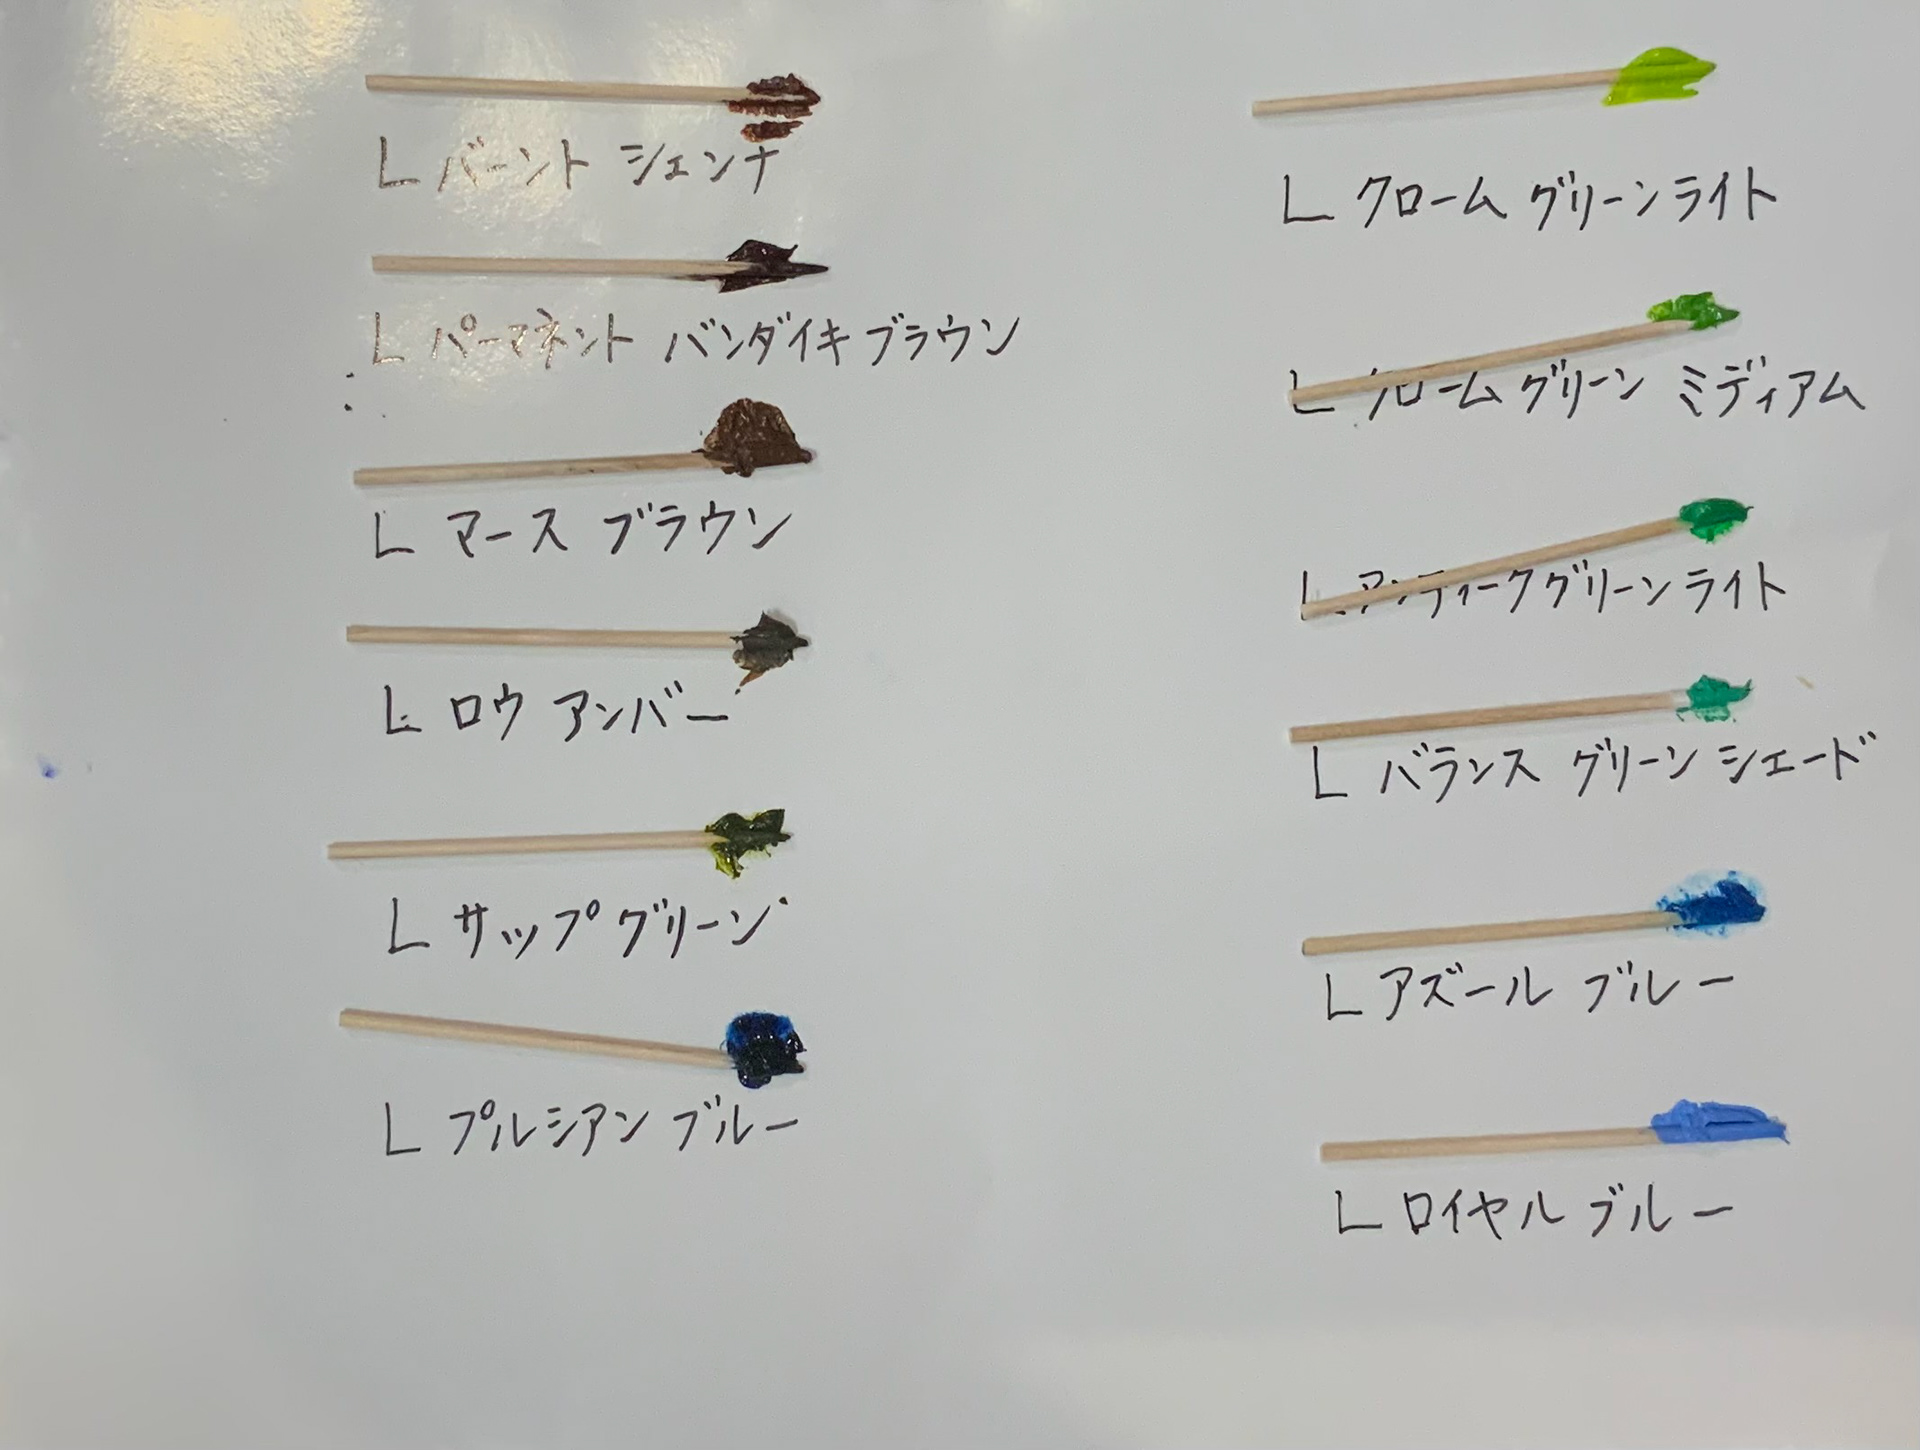 L バーント シェンナ
L パーマネント バンダイキ ブラウン
L マース ブラウン
L ロウ アンバー
L サップ グリーン
L プルシアン ブルー
L クローム グリーン ライト
L クローム グリーン ミディアム
L アンティーク グリーン ライト
L バランス グリーン シェード
L アズール ブルー
L ロイヤル ブルー